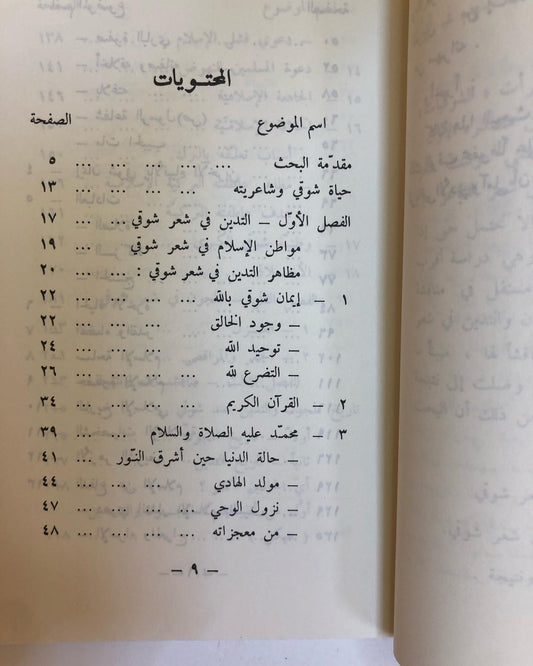 المحتويات
اسم الموضوع الصفحة
مقدّمة البحث ... ... ... ... ... ٥
حياة شوقي وشاعريته ... ... ... ... ١٣
الفصل الأوّل – التدين في شعر شوقي ... ... ١٧
مواطن الإسلام في شعر شوقي ... ... ١٩
مظاهر التدين في شعر شوقي : ... ... ٢٠
١ – إيمان شوقي بالله ... ... ... ... ٢٢
– وجود الخالق ... ... ... ... ٢٢
– توحيد الله ... ... ... ... ٢٤
– التضرع لله ... ... ... ... ٢٦
٢ – القرآن الكريم ... ... ... ... ٣٤
٣ – محمّد عليه الصلاة والسلام ... ... ... ٣٩
– حالة الدنيا حين أشرق النّور ... ... ٤١
– مولد الهادي ... ... ... ... ٤٤
– نزول الوحي ... ... ... ... ٤٧
– من معجزاته ... ... ... ... ٤٨
– ٩ –